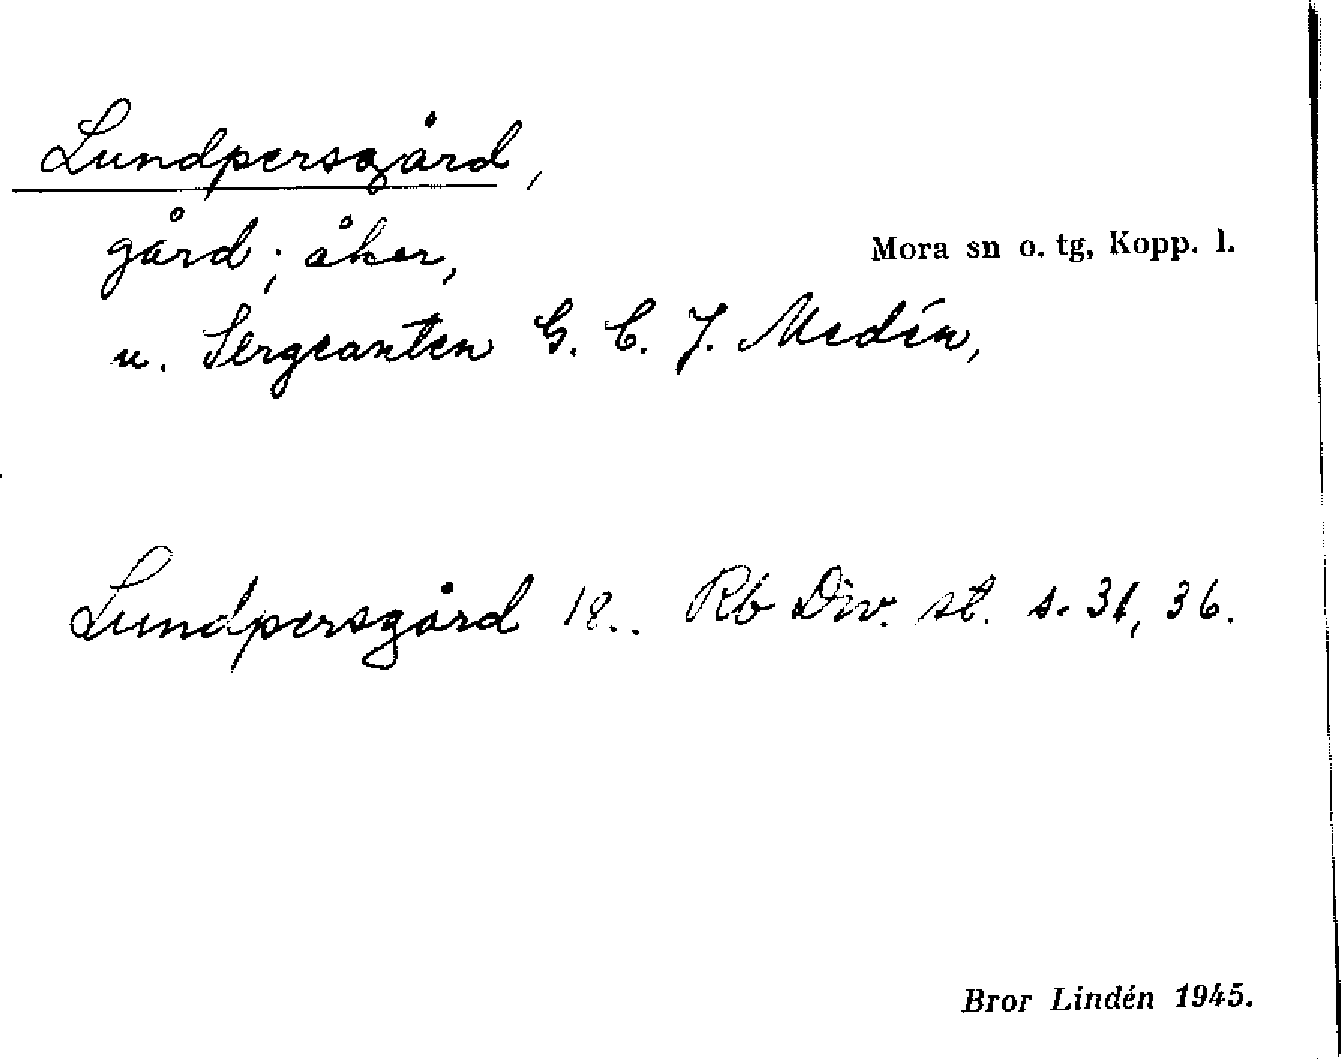 Lundpersgård,
gård; åker,
Mora sn o. tg, Kopp. l.
u. Sergeanten G. C. J. Medín,
Lundpersgård 18.. Rb Div. st. s. 31, 36.
Bror Lindén 1945.